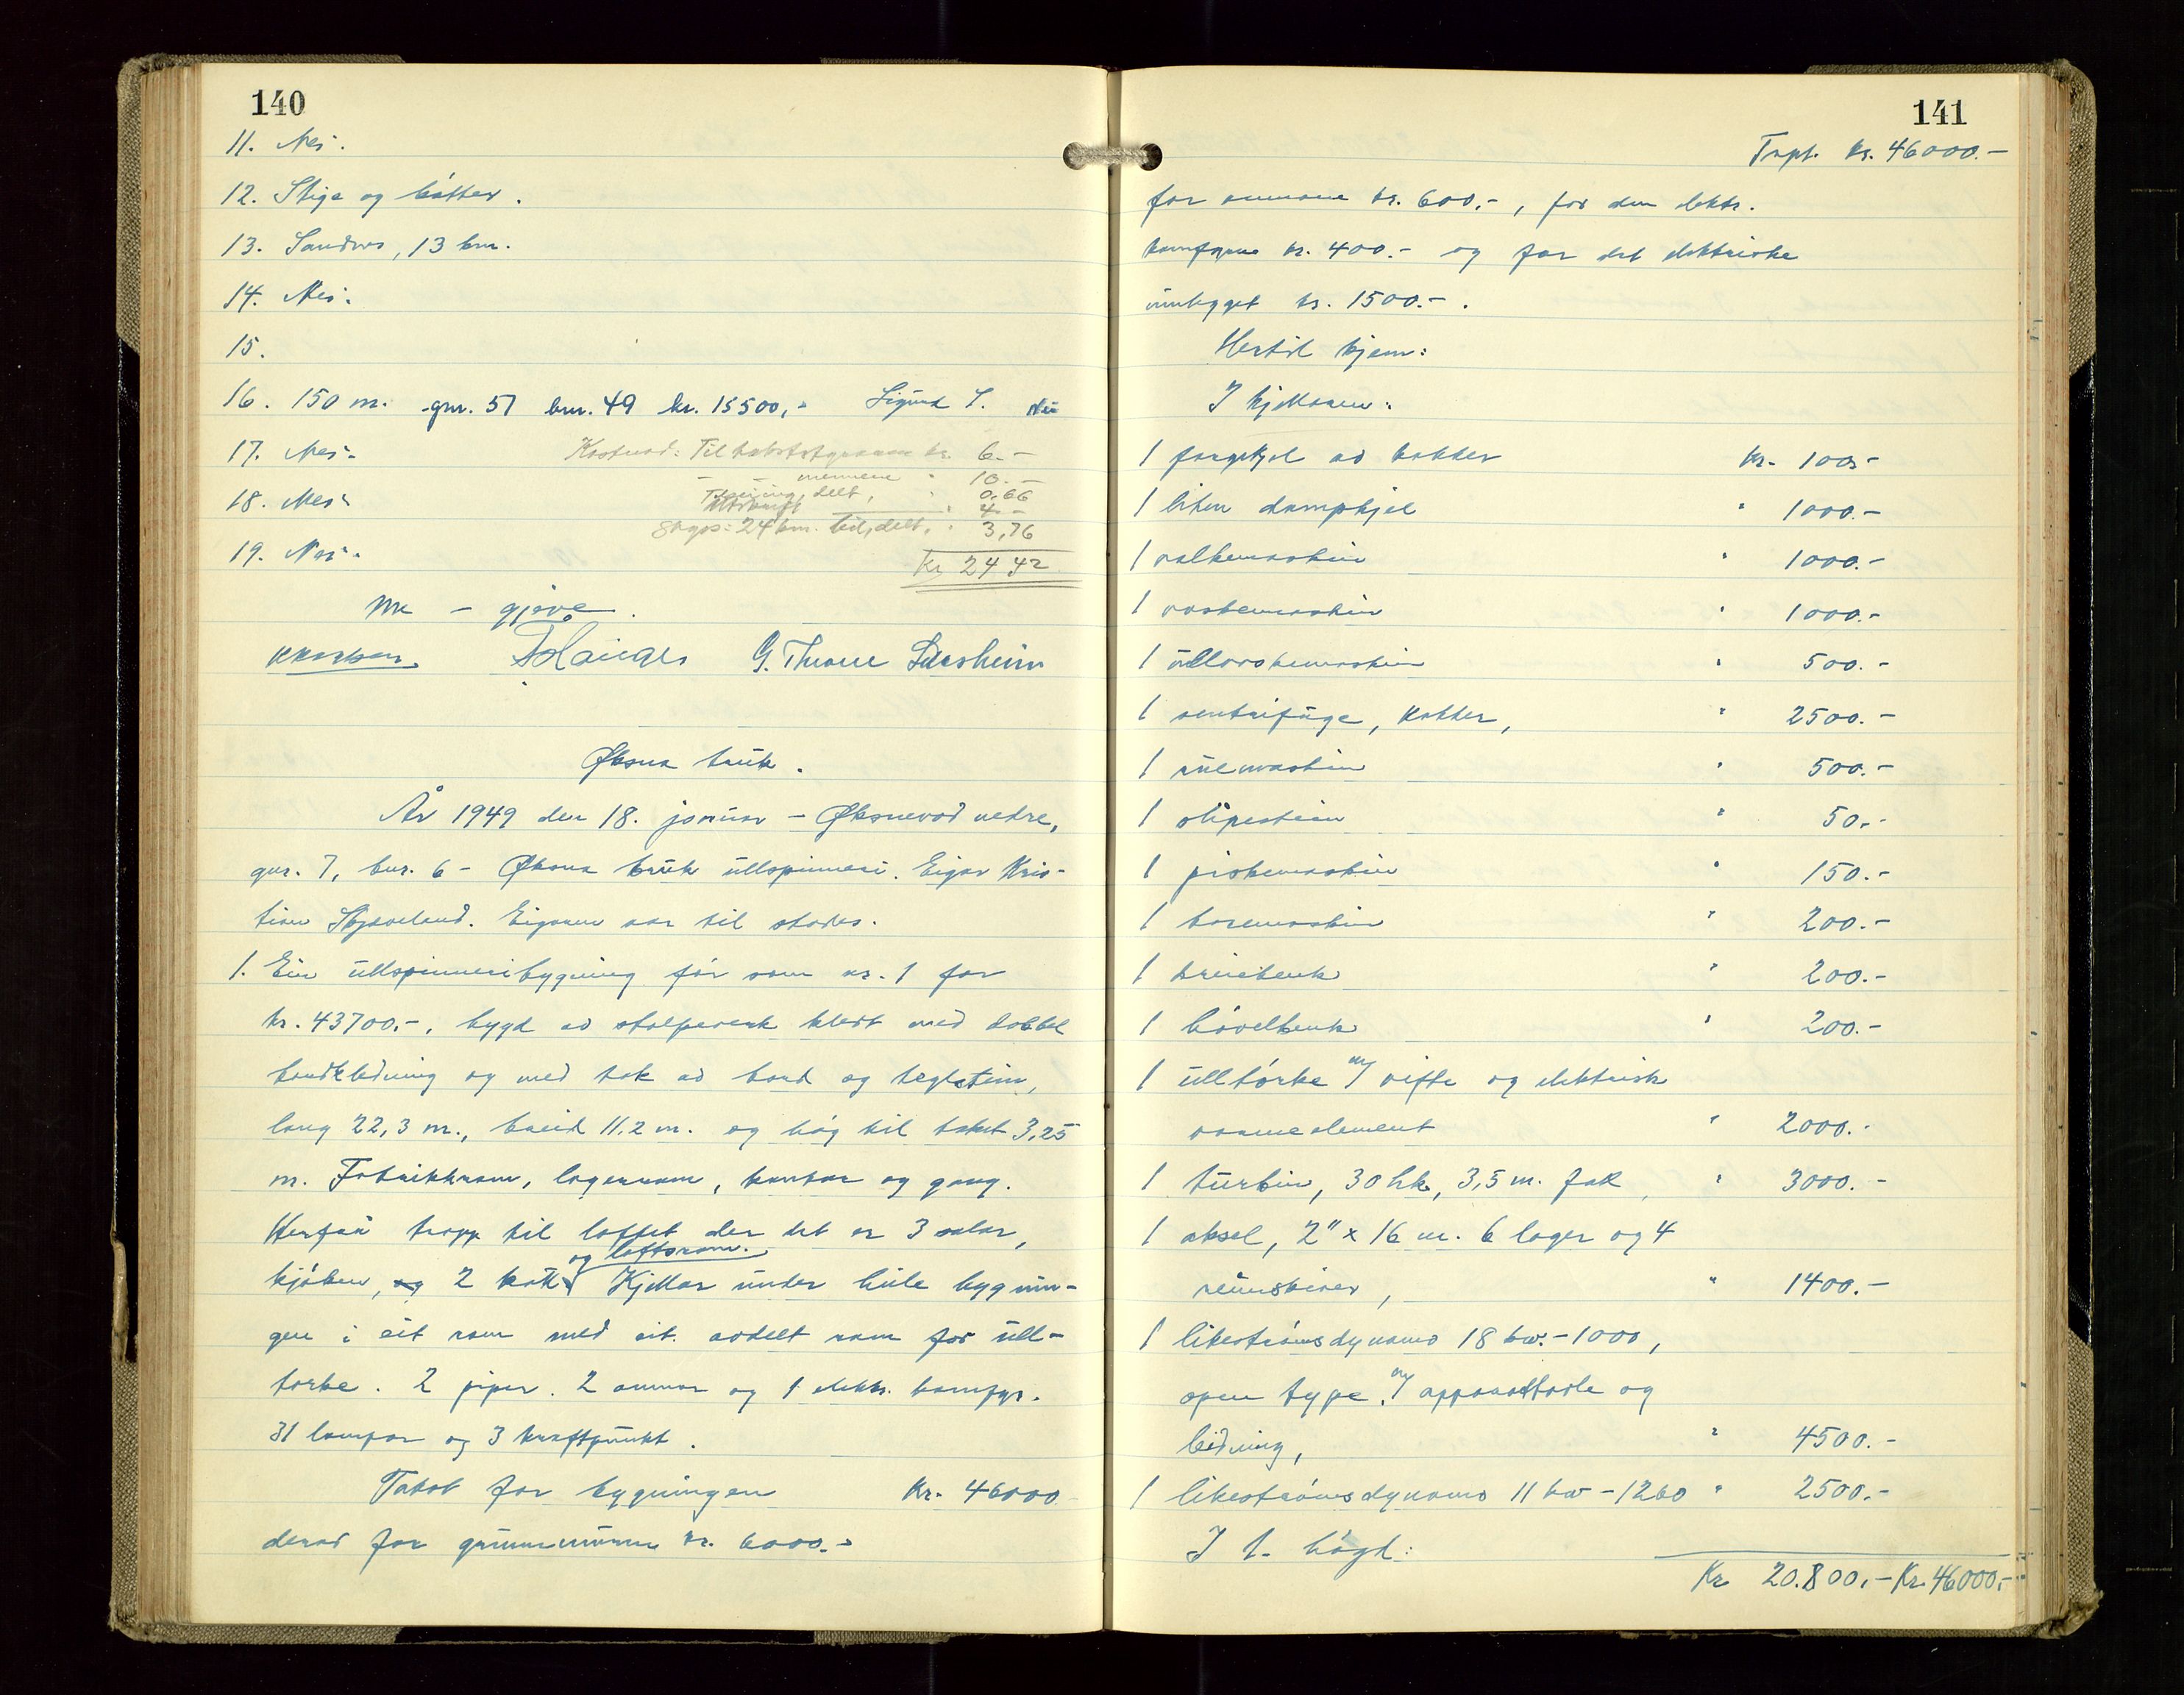 140
11. Nei.
12. Stige og bøtter.
13. Sandnes, 13 km.
14. Nei.
15.
16. 150 m. gnr. 57 bnr. 49 kr. 15500,- Sigurd T.
17. Nei.
Kostnad: Til takststyraren kr. 6.-
- - mennene " 10.-
18. Nei.
Tinging, delt, " 0.66
Utskrift " 4.-
Skyss: 24 km. bil, delt, " 3,76
19. Nei.
Kr 24 42
G. Thrane Larsheim
Øksna bruk.
År 1949 den 18. januar - Øksnevad nedre,
gnr. 7, bnr. 6 - Øksna bruk ullspinneri. Eigar Kris-
tian Skjæveland. Eigaren var til stades.
1. Ein ullspinneribygning før som nr. 1 for
kr. 43700.-, bygd av stolpeverk kledt med dobbel
bordkledning og med tak av bord og teglstein,
lang 22,3 m., breid 11.2 m. og høg til taket 3,25
m. Fabrikkrom, lagerrom, kontor og gang.
Herfrå tropp til loftet der det er 3 salar,
og loftsrom.
kjøken, og 2 kott. Kjellar under heile bygnin-
gen i eit rom med eit avdelt rom for ull-
tørke. 2 piper. 2 omnar og 1 elektr. komfyr.
31 lampor og 3 kraftpunkt.
Takst for bygningen Kr. 46000
derav for grunnmuren kr. 6000.-
141
Tnpt. kr. 46000.-
for omnane kr. 600.-, for den elektr.
komfyren kr. 400.- og for det elektriske
innlegget kr. 1500.-.
Hertil kjem:
I kjellaren:
1 fargekjel av kobber Kr. 100.-
1 liten dampkjel " 1000.-
1 valkemaskin " 1000.-
1 vaskemaskin " 1000.-
1 ullvaskemaskin " 500.-
1 sentrifuge, kobber, " 2500.-
1 ruemaskin " 500.-
1 slipestein " 50.-
1 piskemaskin " 150.-
1 boremaskin " 200.-
1 dreiebenk " 200.-
1 høvelbenk " 200.-
1 ulltørke m/ vifte og elektrisk
varmeelement " 2000.-
1 turbin, 30 hk, 3,5 m. fall, " 3000.-
1 aksel, 2" x 16 m. 6 lager og 4
reimskiver, " 1400.-
1 likestrømsdynamo 18 kw.-1000,
open type, m/ apparattavle og
leidning, " 4500.-
1 likestrømsdynamo 11 kw - 1260 " 2500.-
I 1. høgd:
Kr 20.800.- Kr. 46000,-